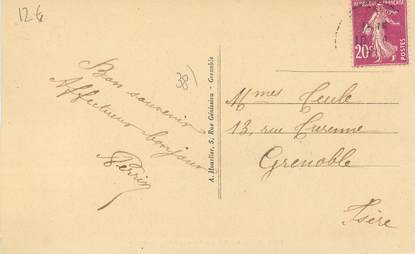 12 €
38
Bon souvenir
Affectueux bonjour
Perrin
A. Hourlier, 5, Rue Génissieu - Grenoble
RÉPUBLIQUE FRANÇAISE
20c
POSTES
Mmes Ceule
13, rue Turenne
Grenoble
Isère